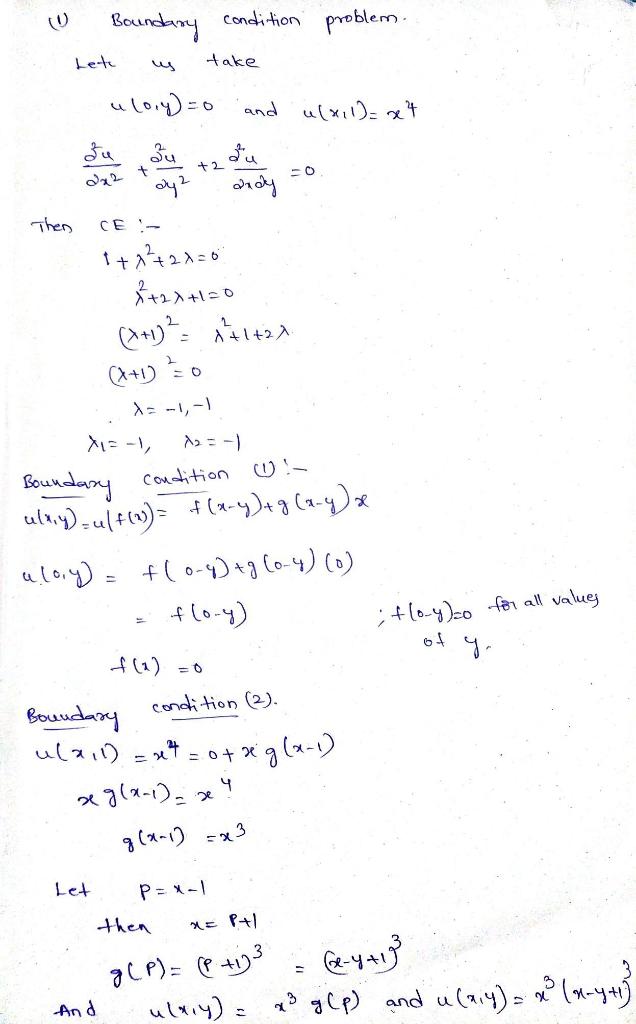 (1) Boundary condition problem.
Let us take
u(0,y)=0 and u(x,1)=x⁴
∂²u/∂x² + ∂²u/∂y² + 2 ∂²u/∂x∂y = 0
Then CE :-
1+λ²+2λ=0
λ²+2λ+1=0
(λ+1)² = λ²+1+2λ
(λ+1)² = 0
λ = -1,-1
λ1=-1, λ2=-1
Boundary condition (1) :-
u(x,y)=u(f(x))= f(x-y)+g(x-y)x
u(0,y) = f(0-y)+g(0-y)(0)
= f(0-y) ; f(0-y)=0 for all values of y.
f(x) =0
Boundary condition (2).
u(x,1) =x⁴ = 0+x g(x-1)
x g(x-1)= x⁴
g(x-1) =x³
Let P=x-1
then x= P+1
g(P)= (P+1)³ = (x-y+1)³
And u(x,y) = x³ g(P) and u(x,y)= x³(x-y+1)³